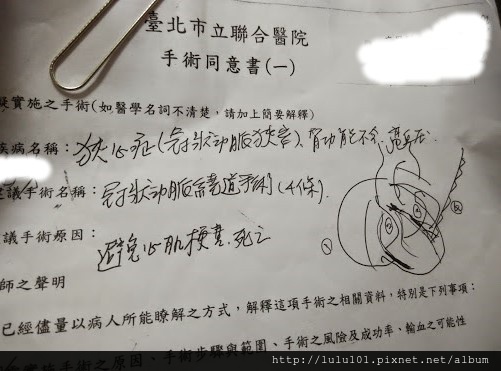 臺北市立聯合醫院
手術同意書(一)
擬實施之手術(如醫學名詞不清楚,請加上簡要解釋)
疾病名稱: 狹心症(冠狀動脈狹窄)、腎功能不全、高血压
建議手術名稱: 冠狀動脈繞道手術(4條)
建議手術原因: 避免心肌梗塞、死亡
師之聲明
已經儘量以病人所能瞭解之方式,解釋這項手術之相關資料,特別是下列事項:
實施手術之原因、手術步驟與範圍、手術之風險及成功率、輸血之可能性
① ② ③
http://lulu101.pixnet.net/album